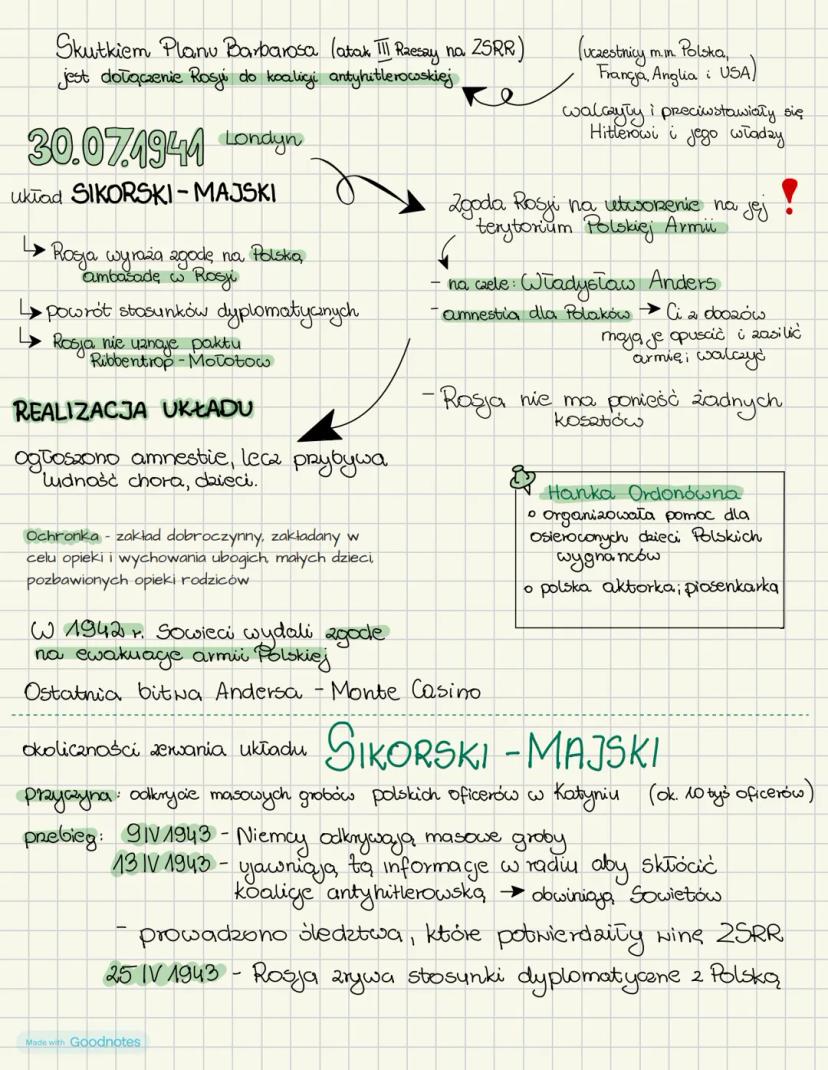 Skutkiem Planu Barbarosa (atak III Rzeszy na ZSRR)
jest dołączenie Rosji do koalicji antyhitlerowskiej
(uczestnicy m.in. Polska,
Francja, Anglia i USA)
walczyły i przeciwstawiały się
Hitlerowi i jego władzy
30.07.1941 Londyn
układ SIKORSKI - MAJSKI
↳ Rosja wyraża zgodę na Polską
ambasadę w Rosji
↳ powrót stosunków dyplomatycznych
↳ Rosja nie uznaje paktu
Ribbentrop - Mołotow
Zgoda Rosji na utworzenie na jej !
terytorium Polskiej Armii
- na czele: Władysław Anders
- amnestia dla Polaków → Ci z obozów
mają je opuścić i zasilić
armię i walczyć
- Rosja nie ma ponieść żadnych
kosztów
REALIZACJA UKŁADU
ogłoszono amnestie, lecz przybywa
ludność chora, dzieci.
Ochronka - zakład dobroczynny, zakładany w
celu opieki i wychowania ubogich, małych dzieci,
pozbawionych opieki rodziców
Hanka Ordonówna
o organizowała pomoc dla
osieroconych dzieci Polskich
wygnańców
o polska aktorka i piosenkarka
W 1942 r. Sowieci wydali zgodę
na ewakuację armii Polskiej
Ostatnia bitwa Andersa - Monte Casino
okoliczności zerwania układu SIKORSKI - MAJSKI
przyczyna: odkrycie masowych grobów polskich oficerów w Katyniu (ok. 10 tyś oficerów)
przebieg: 9 IV 1943 - Niemcy odkrywają masowe groby
13 IV 1943 - ujawniają tą informacje w radiu aby skłócić
koalicję antyhitlerowską → obwiniają Sowietów
- prowadzono śledztwa, które potwierdziły winę ZSRR
25 IV 1943 - Rosja zrywa stosunki dyplomatyczne z Polską
Made with Goodnotes